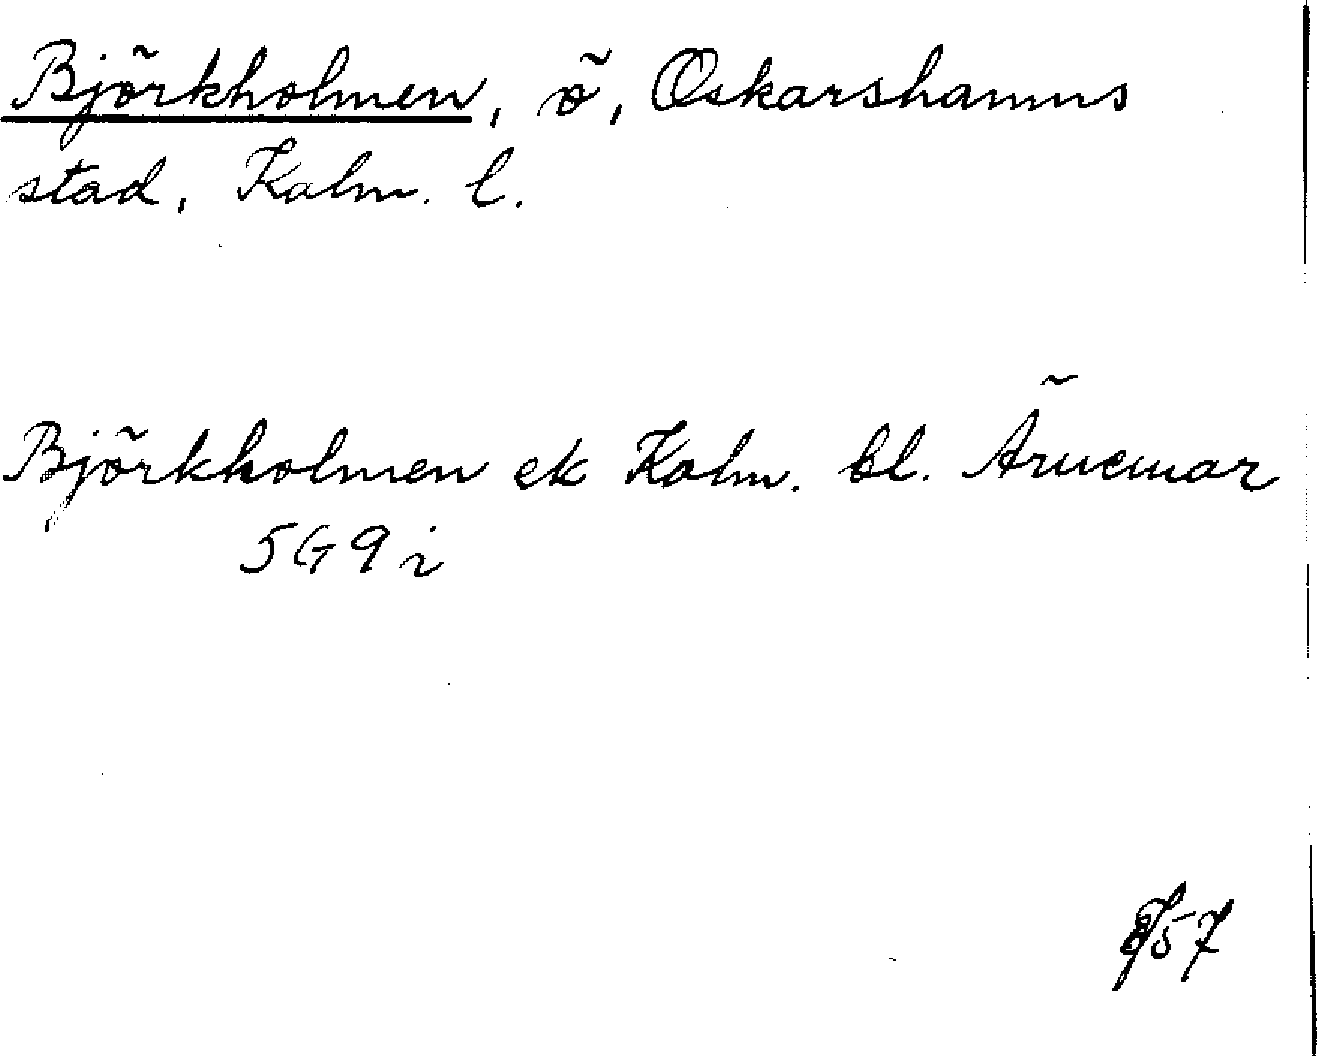 Björkholmen, ö, Oskarshamns
stad, Kalm. l.
Björkholmen ek Kalm. bl. Ärnemar
5G9i
57